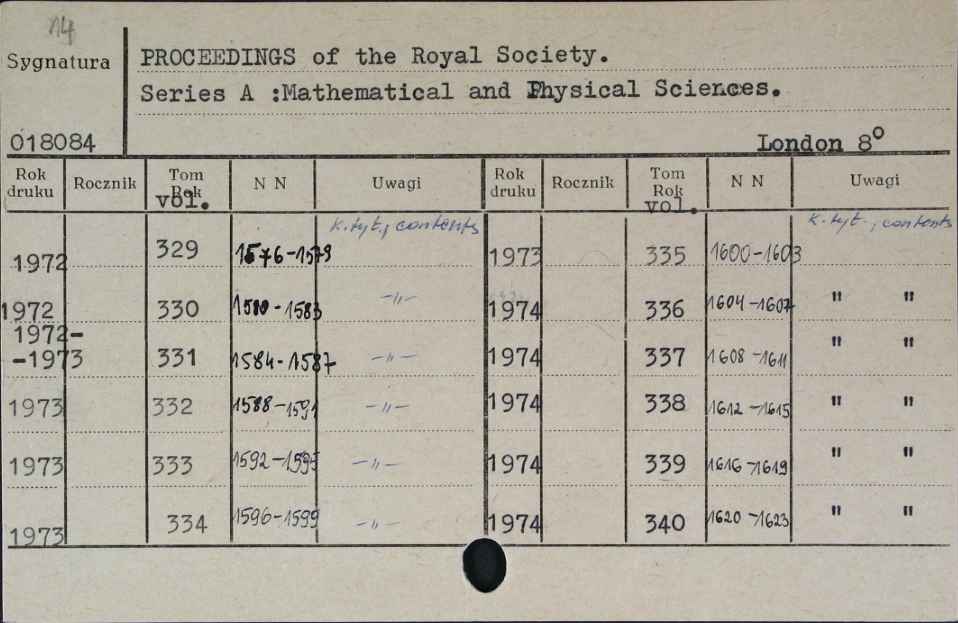 14
Sygnatura
PROCEEDINGS of the Royal Society.
Series A :Mathematical and Physical Sciences.
018084
London 8°
Rok druku Rocznik Tom Rok vol. N N Uwagi Rok druku Rocznik Tom Rok vol. N N Uwagi
k.tyt., contents k.tyt., contents
1972 329 1576-1579 1973 335 1600-1603
1972 330 1580-1583 -"- 1974 336 1604-1607 " "
1972-
-1973 331 1584-1587 -"- 1974 337 1608-1611 " "
1973 332 1588-1591 -"- 1974 338 1612-1615 " "
1973 333 1592-1595 -"- 1974 339 1616-1619 " "
1973 334 1596-1599 -"- 1974 340 1620-1623 " "